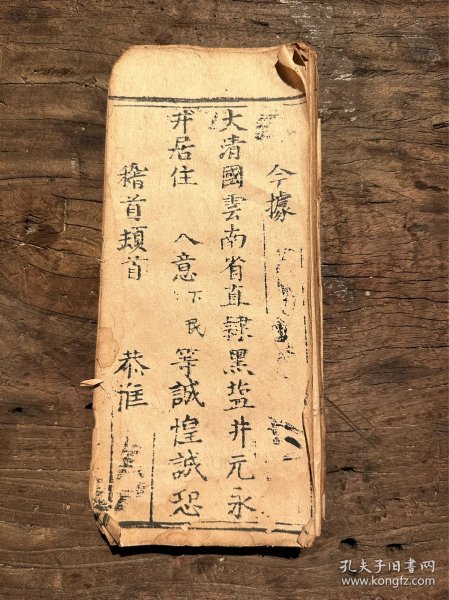 今據
大清國雲南省直隸黑盐井元永
井居住 人意下民等誠惶誠恐
稽首頓首 恭惟
孔夫子旧书网
www.kongfz.com